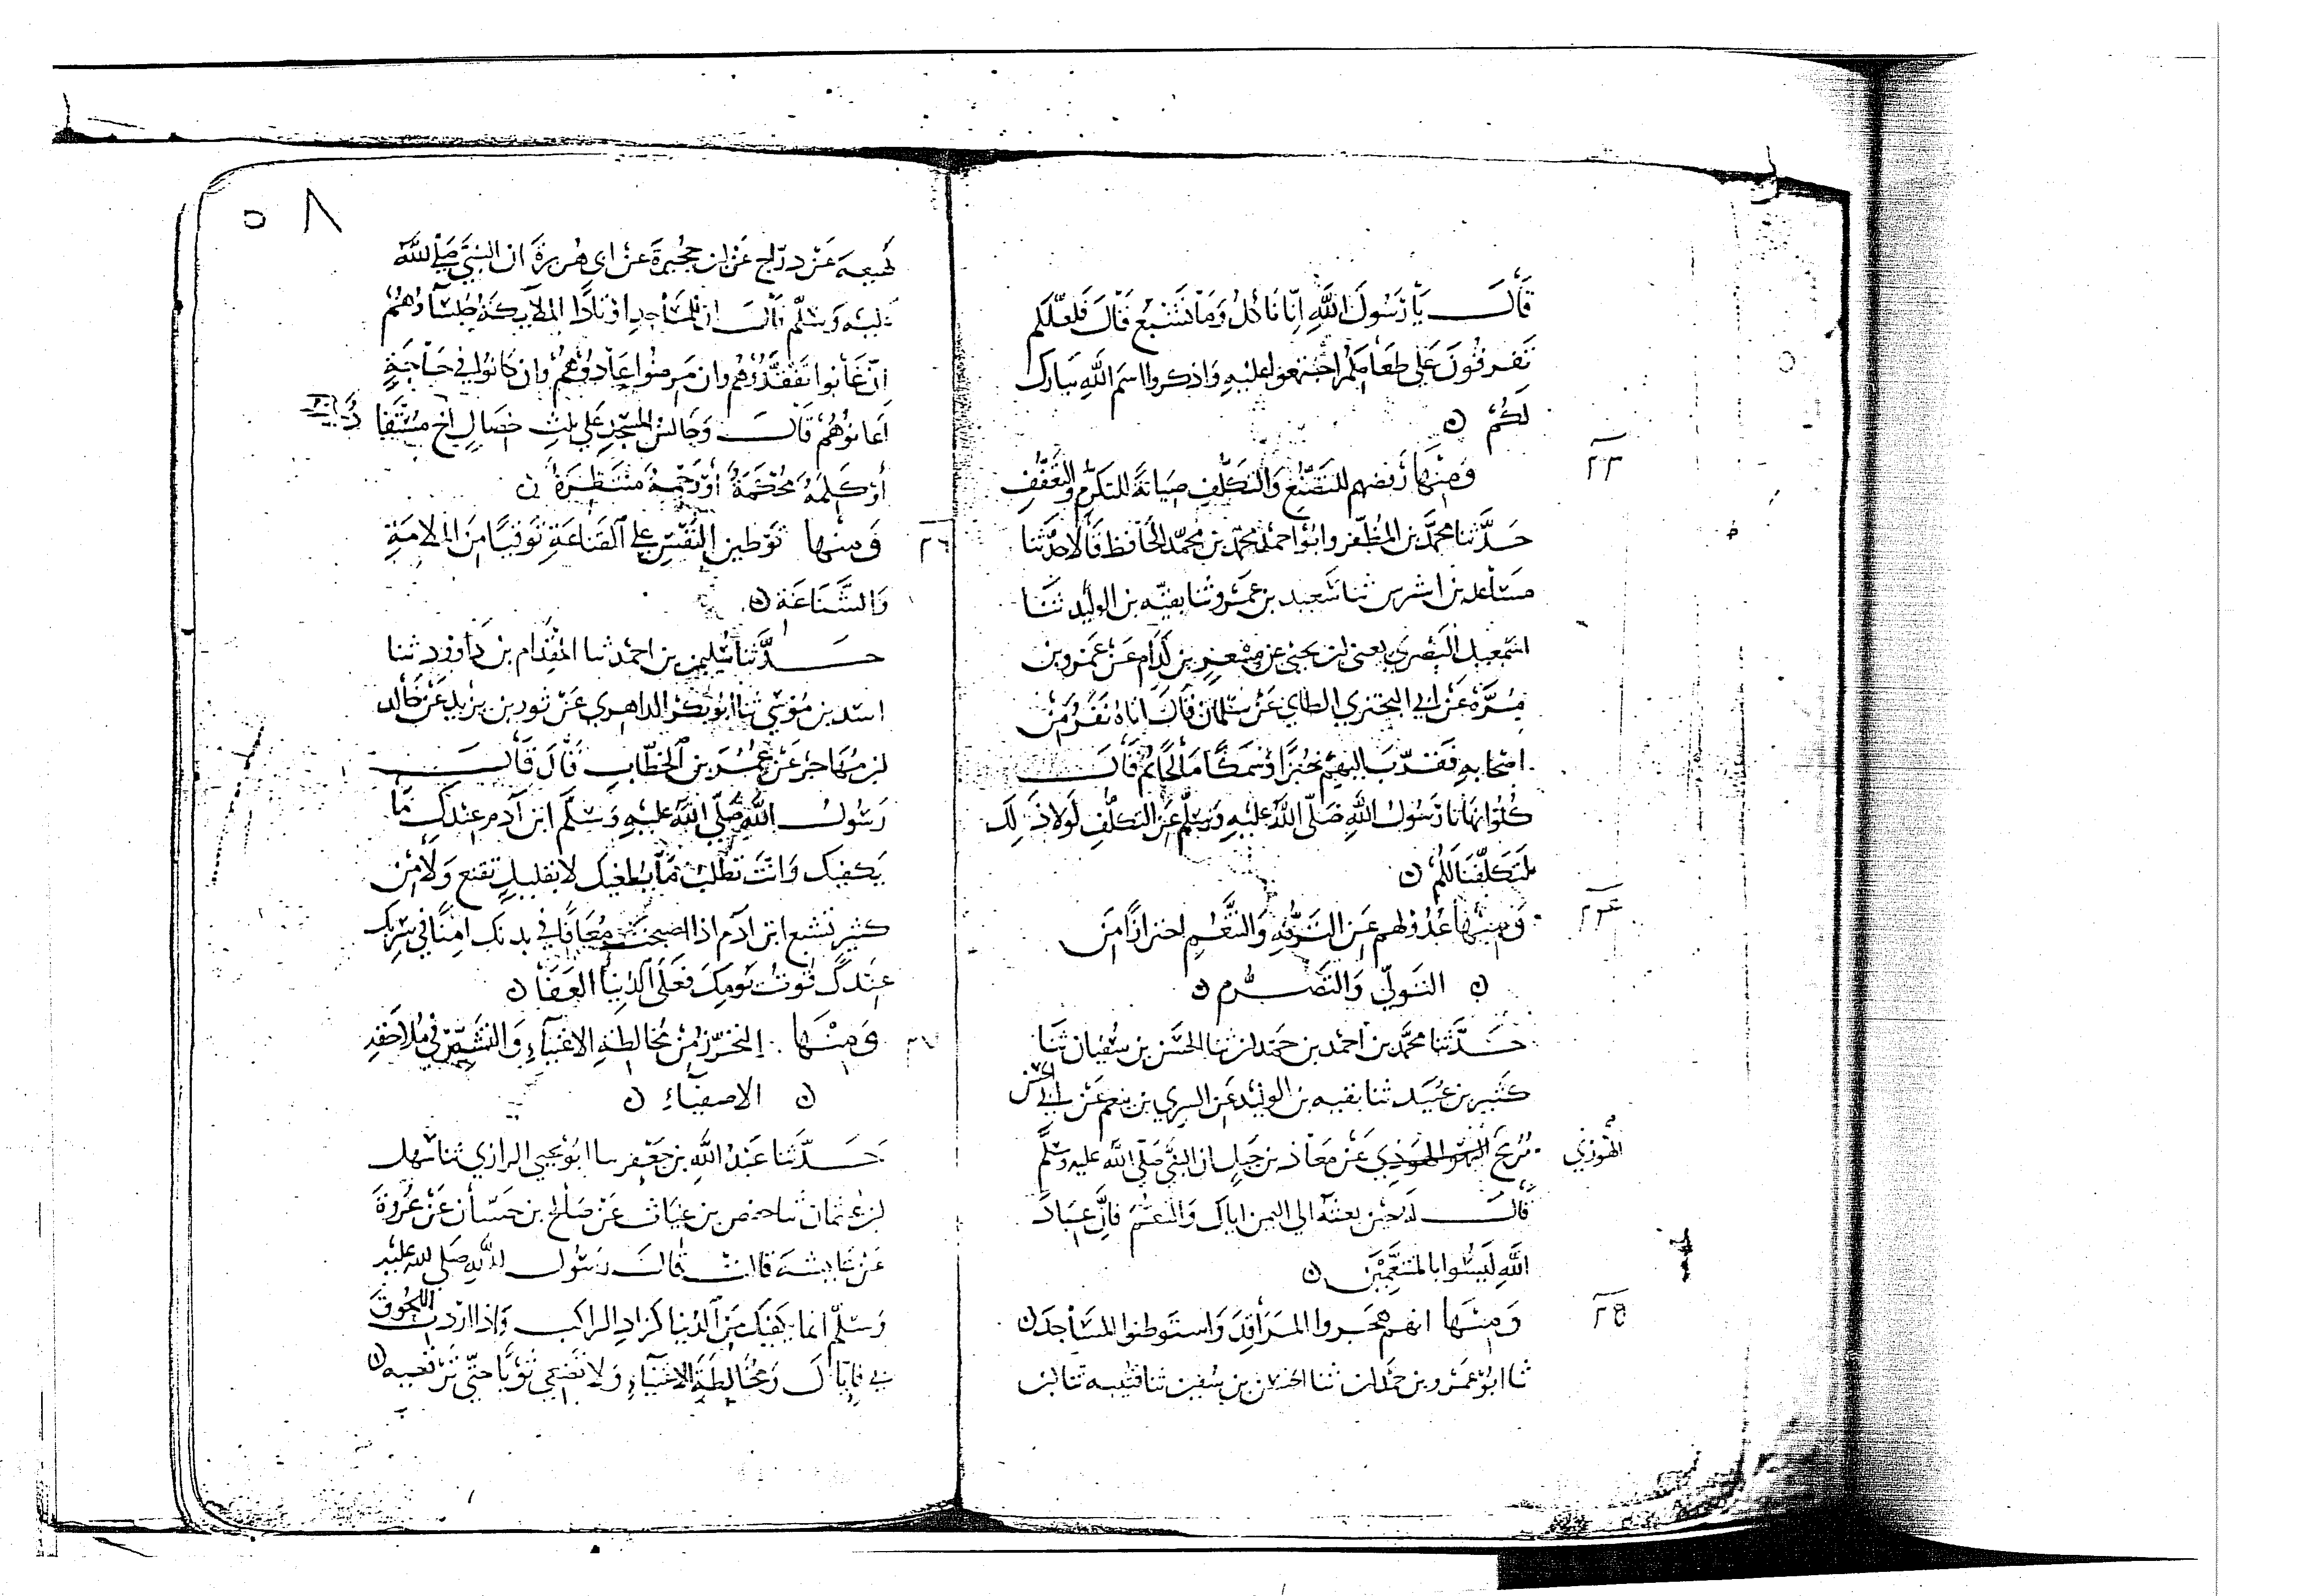 قَالَ يَا رَسُولَ اللَّهِ اِنّا نَاكُلُ وَمَا نَشبَعُ قَالَ فَلَعَلّكم
تَفرقُونَ عَلى طعَامِكُمُ اجْتَمعُوا عليهِ وَاذكروا اسمَ اللهِ يبارك
لَكُمْ ن
٢٣
وَمِنْهَا رَفضهم للتَصَنّعِ وَالتكلّفِ صيَانةً للتكرّمِ والتَّعَفُّفِ
حَدَّثنا محمَّد بن المُظفّر وابُو احمدَ محمّد بن محمّد الحَافظ قَالا حَدّثنا
مسَاعد بن اشرس ثنا سَعيد بن عمَرو ثنا بقيّه بن الوليد ثنَا
اسمعيل البَصْري يعنى ابن يحيى عن مِسْعَرِ بن كدَام عَن عَمرو بن
مُرّةَ عَن ابي البختري الطاي عَنْ سَلمان قَالَ اتاهُ نَفَرٌ مِنْ
اصحَابهِ فَقدّبَ اليهِمْ خُبزًا وَسَمَكًا مَالحًا ثم قَالَ
كُلُوا نهَانا رَسُولُ اللهِ صَلّى اللهُ عَليْهِ وَسَلّم عَن التكلّفِ لَولا ذَلِكَ
لتَكلّفْنَا لكُم ن
٢٤
وَمِنْهَا عُدُولهم عَن التَرفُّهِ وَالتنَعُّمِ احترازًا مِنَ
ن التَولّي وَالتصَرُّم ن
حَدَّثنا محمَّد بن احمد بن حَمدان ثنا الحسَن بن سُفيان ثنَا
كثير بن عُبَيد ثنا بقيه بن الوليد عَن السري بن ينعم عَن ابي الحسن
مُريح الهوذي عَنْ مَعَاذ بن جَبَلٍ ان النبَّى صَلّى اللهُ عليه وسَلَّم
الهوزني
قَالَ له حِين بعثهُ الى اليمن اياك وَالتنعّمَ فَانّ عبَادَ
اللهِ لَيسُوا بالمتنعّمِيْنَ ن
٢٥
وَمِنْهَا انهم هجَروا المرَاقِدَ وَاستَوطنوا المسَاجدَ ن
ثنا ابُو عَمرو بن حَمدان ثنا الحسَن بن سُفين ثنا قتيبه ثنا ابن
٥٨
لَهيعه عَنْ درّاج عَن ابن حُجيرة عَنْ ابي هُريرَة ان النبيَّ صَلى الله
عَليْهِ وَسَلّم قَالَ ان للمسَاجدِ اوتادًا الملايكةُ جُلسَاؤهُمْ
اِنْ غَابُوا تفَقَّدُوهُم وان مَرِضُوا عَادُوهُمْ وان كَانُوا في حَاجَةٍ
اعانوُهُمْ قَالَ وَجَالسُ المسْجِدِ عَلى ثلثِ خصَالٍ اخ مسْتَفَادٍ
أوْ كَلِمَةٌ مُحْكَمَةٌ أوْ رَحْمةٌ مُنتَظَرَةٌ ن
٢٦
وَمِنْهَا تَوْطين النفْسِ على القناعَةِ تَوقّيًا مِنَ الملامَةِ
وَالشَّنَاعَة ن
حَدَّثنا سُليمن بن احمد ثنا المقدام بن دَاوُود ثنا
اسَد بن مُوسى ثنا ابُو بكر الداهري عَنْ ثور بن يزيد عَنْ خالد
ابن مُهَاجر عَنْ عُمَرَ بن الخَطّاب قَالَ قَالَ
رَسُولُ اللهِ صَلّى اللهُ عَليْهِ وَسَلّمَ ابن آدم عندكَ مَا
يَكفيكَ وَانتَ تطلبُ مَا يُطغيكَ لا بقليلٍ تقنع وَلا مِن
كثيرٍ تشبع ابن آدم اذا اصبحتَ مُعَافًا في بدنكَ امنًا في سَربكَ
عِندكَ قوتُ يَومِكَ فعَلَى الدُنيَا العَفَا ن
٢٧
وَمِنْهَا التحرّزُ مِنْ مخالطةِ الاغنيَاءِ وَالتشَمّر في ملاحَظةِ
ن الاصفيَاءِ ن
حَدّثنا عَبدُ اللهِ بن جَعْفر ثنا ابُو يحيى الرازي ثنا سَهل
ابن عثمان ثنا حفص بن غياث عَنْ صَالح بن حَسّان عَنْ عُروةَ
عَنْ عَايشةَ قَالتْ قَالَ رَسُول اللهِ صَلى الله عليه
وَسَلّم انما يكفيكِ مِنَ الدُنيا كزادِ الراكب وَاذا ارَدْتِ اللحُوقَ
بي فايّاكِ وَمخَالطَةَ الاغنيَاءِ وَلا تضعي ثَوبًا حتّى ترقعيه ن